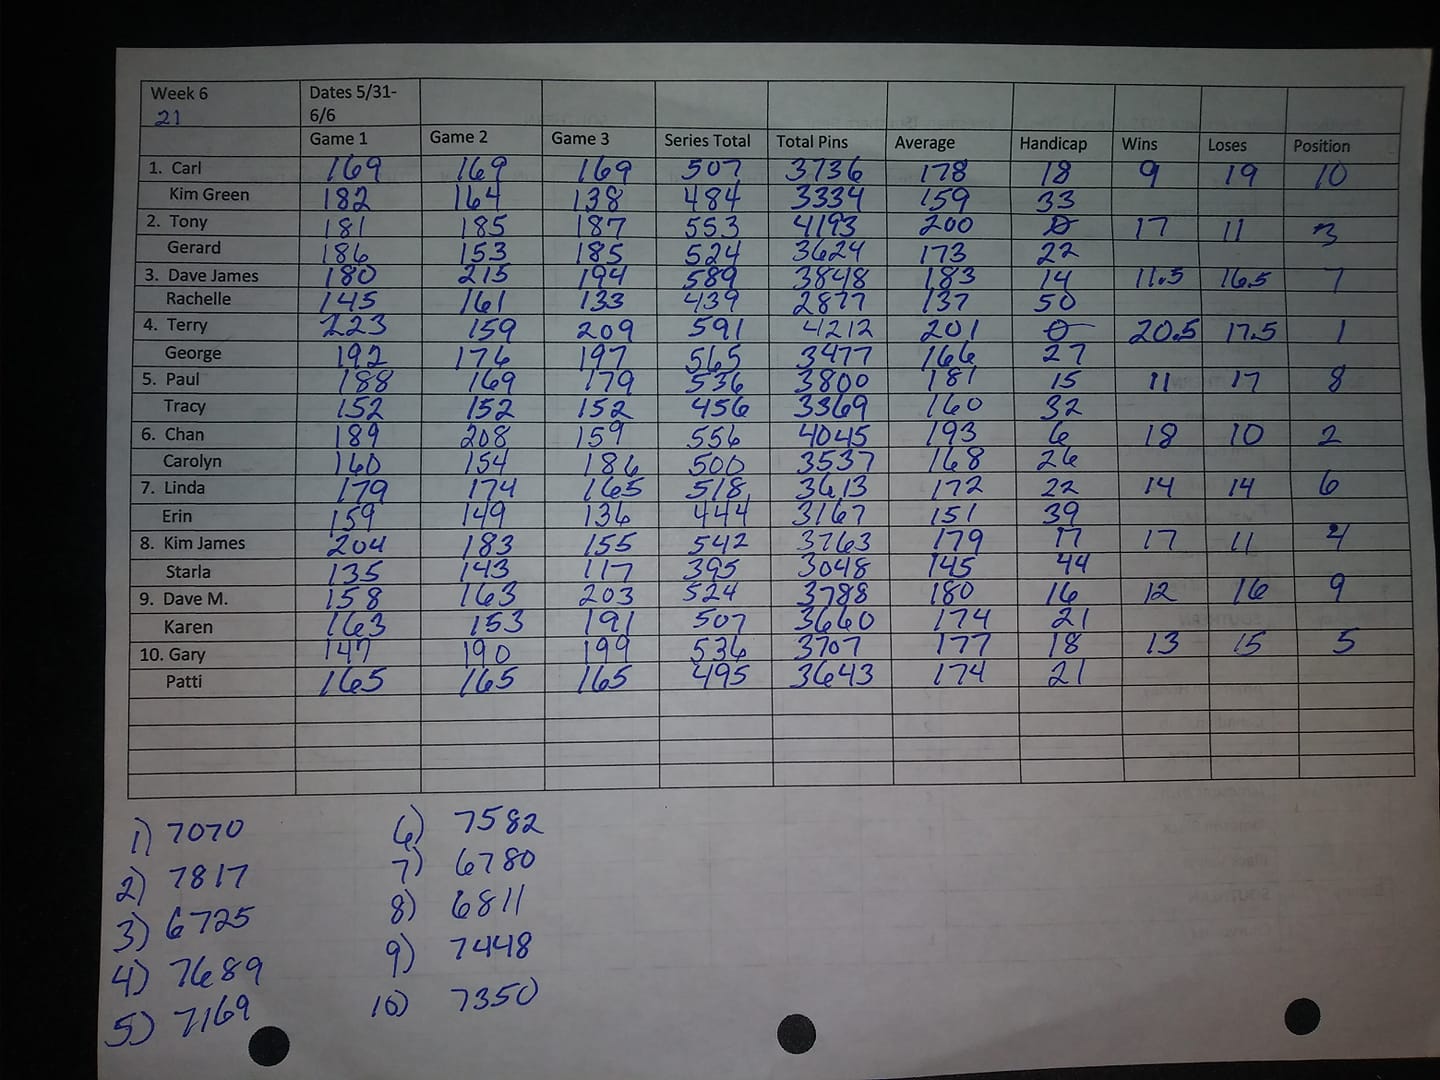 Week 6 Dates 5/31-
21 6/6
Game 1 Game 2 Game 3 Series Total Total Pins Average Handicap Wins Loses Position
1. Carl 169 169 169 507 3736 178 18 9 19 10
Kim Green 182 164 138 484 3334 159 33
2. Tony 181 185 187 553 4193 200 0 17 11 3
Gerard 186 153 185 524 3624 173 22
3. Dave James 180 215 194 589 3848 183 14 11.5 16.5 7
Rachelle 145 161 133 439 2877 137 50
4. Terry 223 159 209 591 4212 201 0 20.5 17.5 1
George 192 176 197 565 3477 166 27
5. Paul 188 169 179 536 3800 181 15 11 17 8
Tracy 152 152 152 456 3369 160 32
6. Chan 189 208 159 556 4045 193 6 18 10 2
Carolyn 160 154 186 500 3537 168 26
7. Linda 179 174 165 518 3613 172 22 14 14 6
Erin 159 149 136 444 3167 151 39
8. Kim James 204 183 155 542 3763 179 17 17 11 4
Starla 135 143 117 395 3048 145 44
9. Dave M. 158 163 203 524 3788 180 16 12 16 9
Karen 163 153 191 507 3660 174 21
10. Gary 147 190 199 536 3707 177 18 13 15 5
Patti 165 165 165 495 3643 174 21
1) 7070
2) 7817
3) 6725
4) 7689
5) 7169
6) 7582
7) 6780
8) 6811
9) 7448
10) 7350